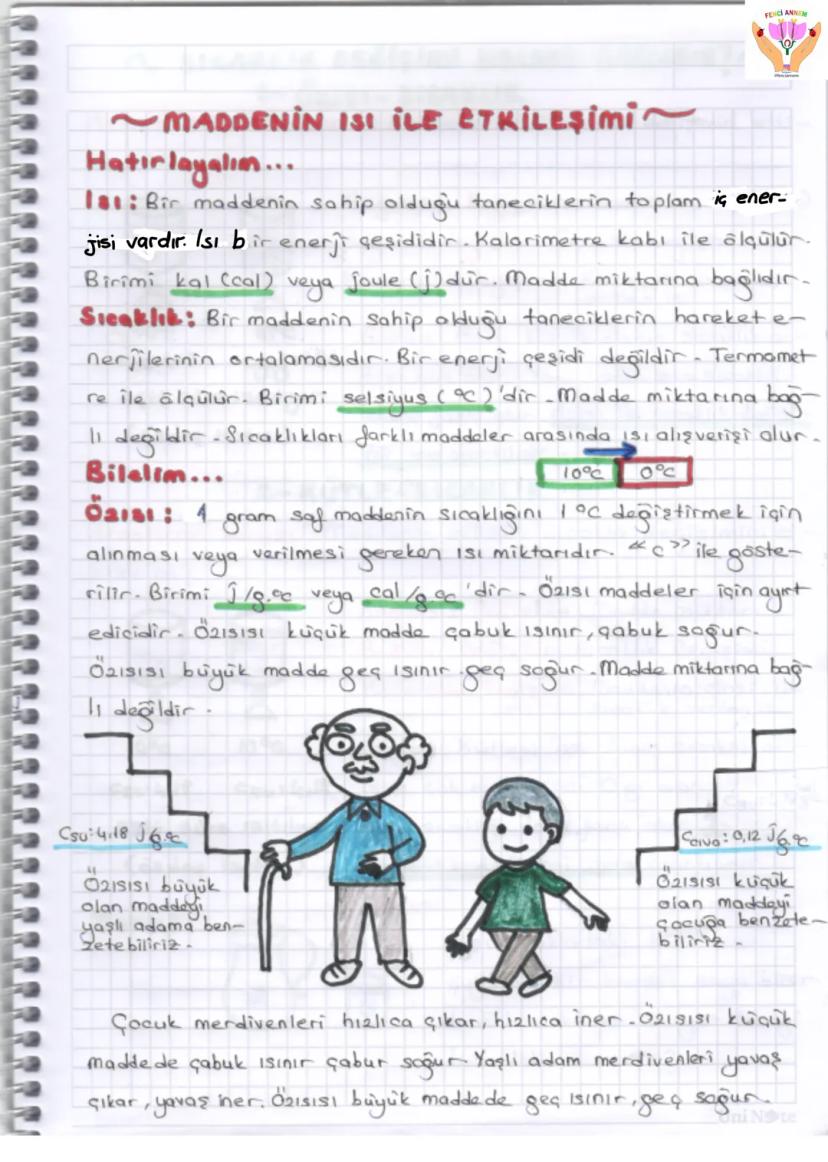 FENCİ ANNEM
~MADDENİN ISI İLE ETKİLEŞİMİ~
Hatırlayalım...
Isı: Bir maddenin sahip olduğu taneciklerin toplam iç ener-
jisi vardır. Isı bir enerji çeşididir. Kalorimetre kabı ile ölçülür.
Birimi kal (cal) veya joule (j)dür. Madde miktarına bağlıdır.
Sıcaklık: Bir maddenin sahip olduğu taneciklerin hareket e-
nerjilerinin ortalamasıdır. Bir enerji çeşidi değildir. Termomet
re ile ölçülür. Birimi selsiyus (°C)'dir. Madde miktarına bağ-
lı değildir. Sıcaklıkları farklı maddeler arasında ısı alışverişi olur.
Bilelim...
10°C 0°C
Özısı: 1 gram saf maddenin sıcaklığını 1°C değiştirmek için
alınması veya verilmesi gereken ısı miktarıdır. "c" ile göste-
rilir. Birimi j/g.°C veya cal/g.°C 'dir. Özısı maddeler için ayırt
edicidir. Özısısı küçük madde çabuk ısınır, çabuk soğur.
Özısısı büyük madde geç ısınır geç soğur. Madde miktarına bağ-
lı değildir.
Csu: 4,18 j/g.°C
Özısısı büyük
olan maddeyi
yaşlı adama ben-
zetebiliriz.
Ccıva: 0,12 j/g.°C
Özısısı küçük
olan maddeyi
çocuğa benzete-
biliriz.
Çocuk merdivenleri hızlıca çıkar, hızlıca iner. Özısısı küçük
maddede çabuk ısınır çabur soğur. Yaşlı adam merdivenleri yavaş
çıkar, yavaş iner. Özısısı büyük maddede geç ısınır, geç soğur.
Uni Note